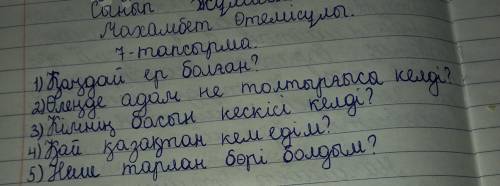 Сынып
Махамбет Өтемісұлы.
7-тапсырма.
1) Қандай ер болған?
2) Өлеңде адам не толтырғысы келді?
3) Кімнің басын кескісі келді?
4) Қай қазақтан кем едім?
5) Неше тарлан бөрі болдым?